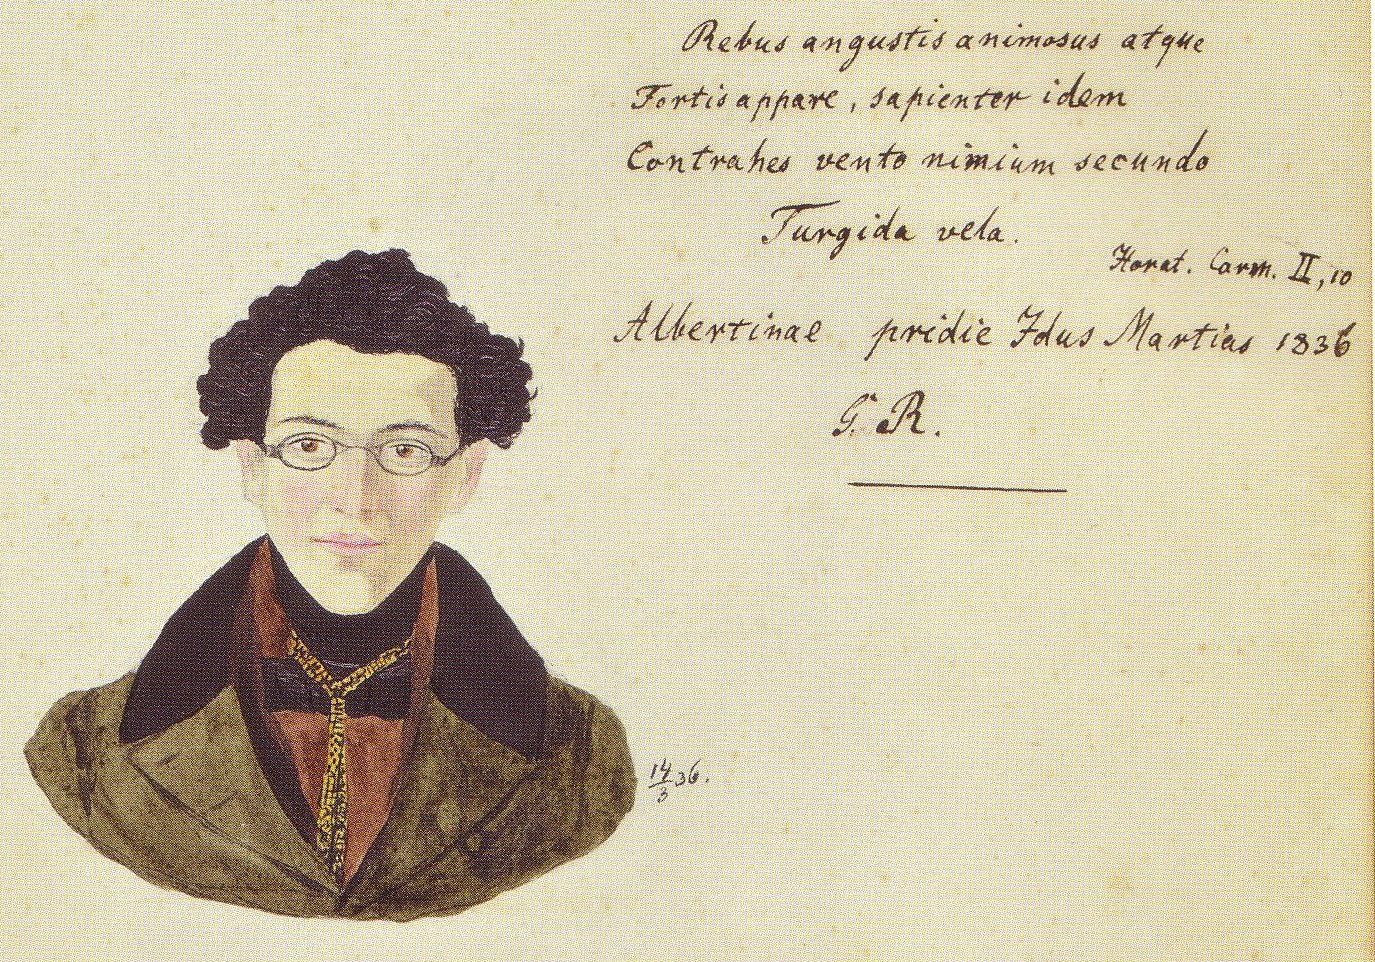 Rebus angustis animosus atque
Fortis appare, sapienter idem
Contrahes vento nimium secundo
Turgida vela.
Horat. Carm. II, 10
Albertinae pridie Idus Martias 1836
G. R.
14/3 36.